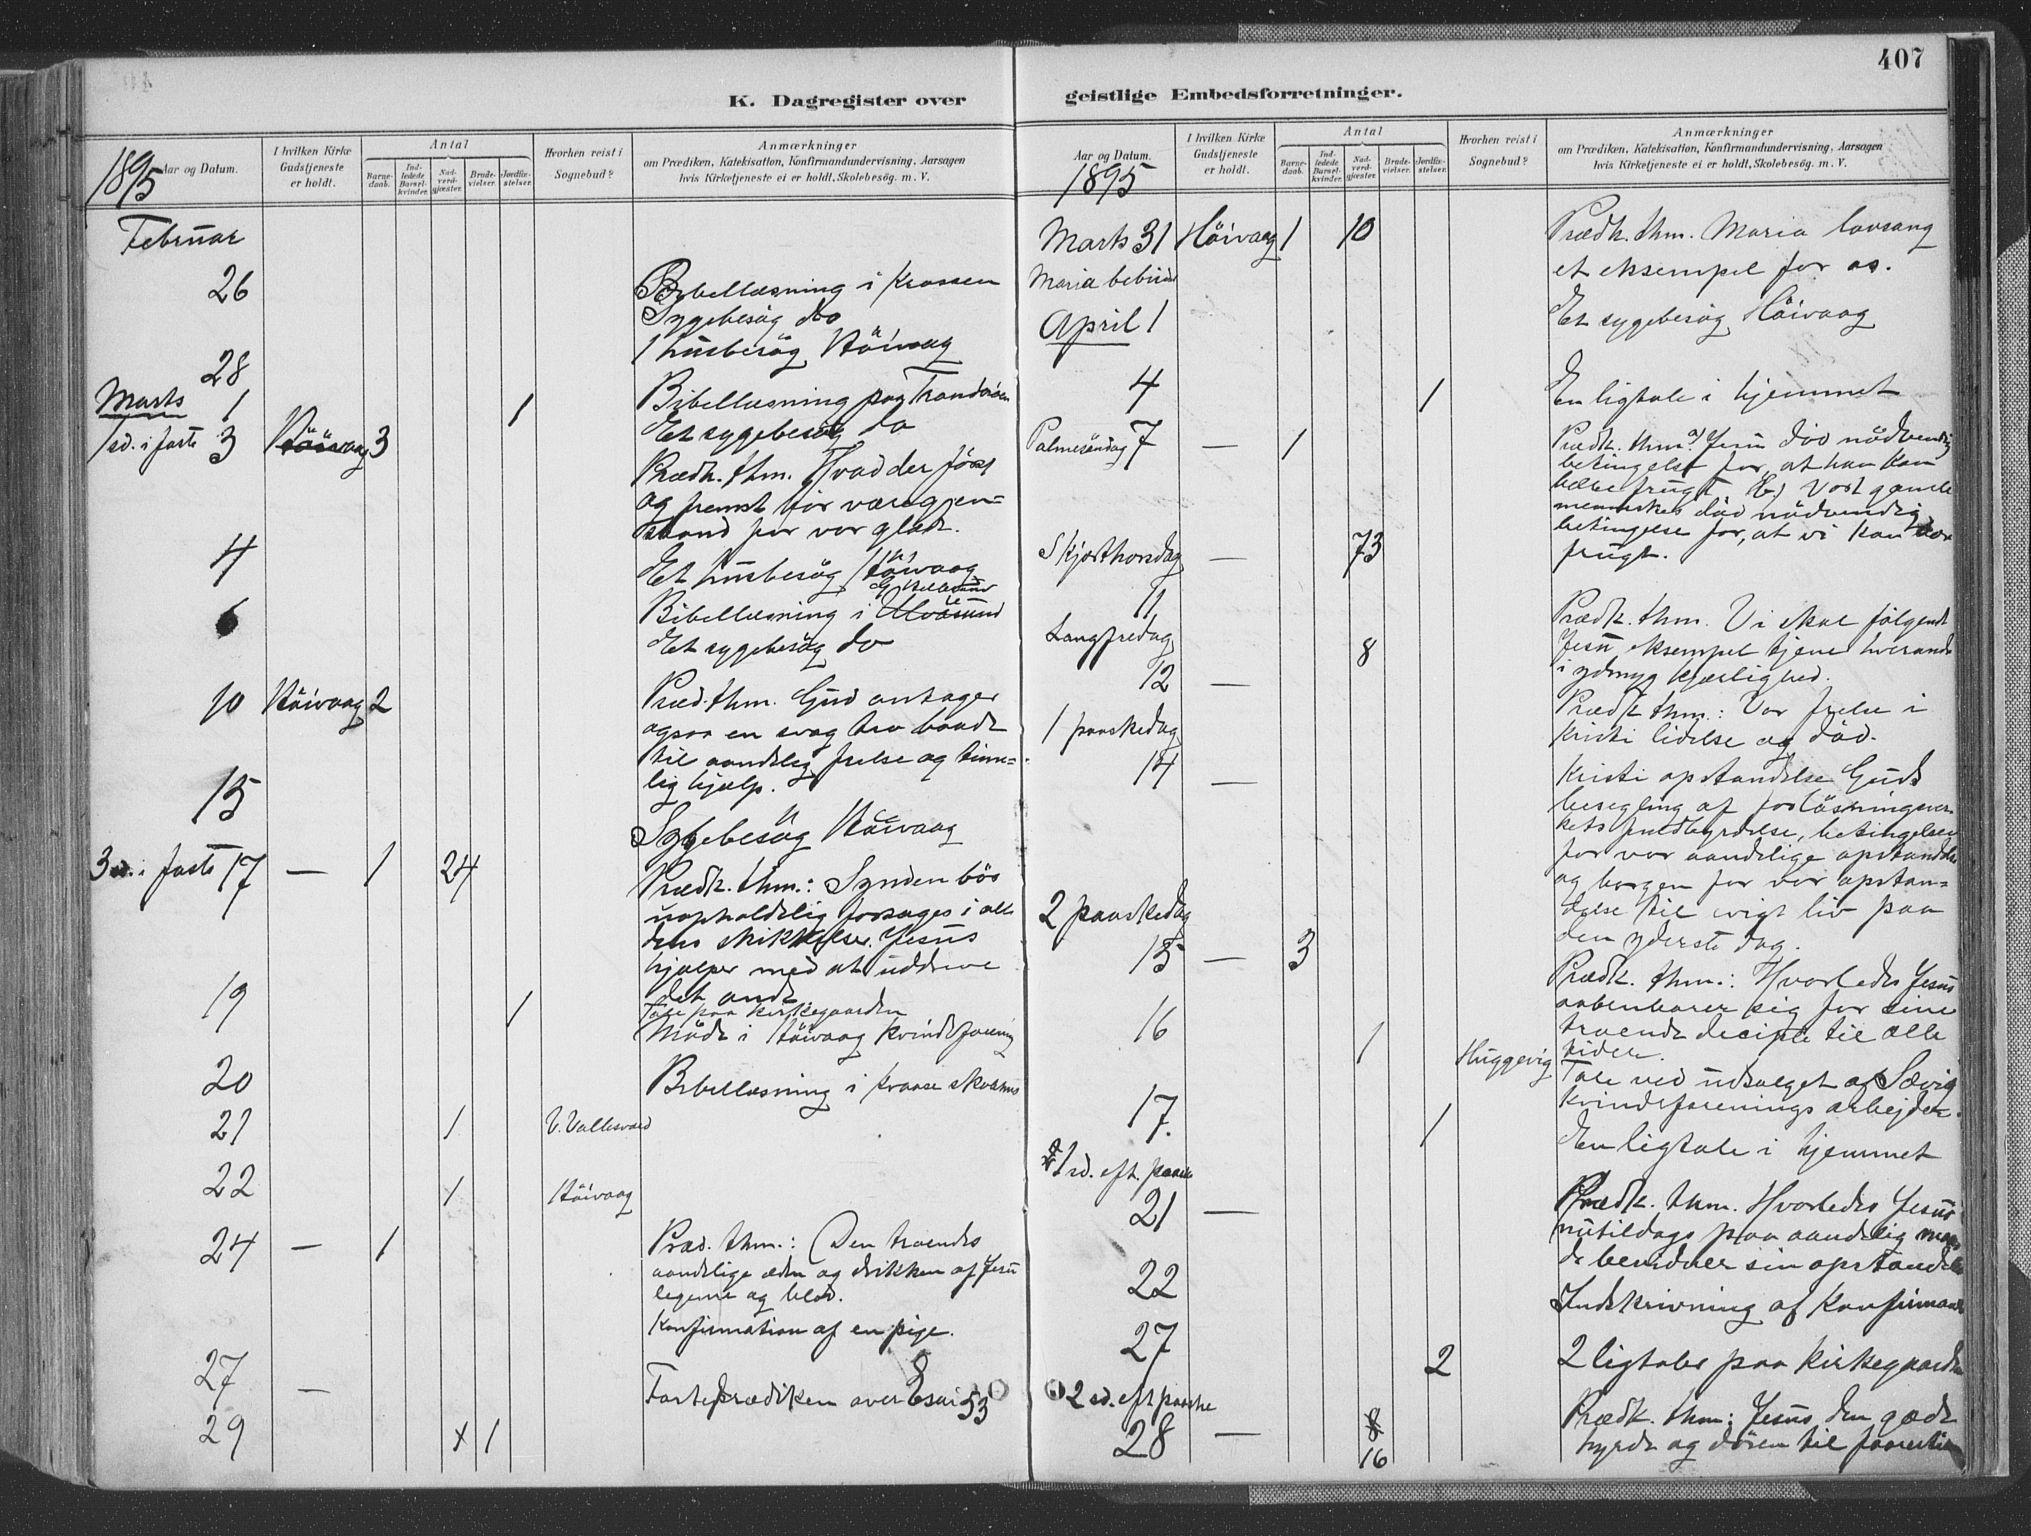 407
K. Dagregister over
geistlige Embedsforretninger.
1895
Aar og Datum.
I hvilken Kirke Gudstjeneste er holdt.
Antal
Barnedaab.
Indledede Barselkvinder.
Nadverdgjæster.
Brudevielser.
Jordfæstelser.
Hvorhen reist i Sognebud?
Anmærkninger
om Prædiken, Katekisation, Konfirmandundervisning, Aarsagen
hvis Kirketjeneste ei er holdt, Skolebesøg. m. V.
Februar
26 Bibellæsning i Krossen
Sygebesøg do
1 husbesøg Høivaag
28
Marts 1 1 Bibellæsning paa
Et sygebesøg do
1 sd. i faste 3 Høivaag 3
Prædk. thm. Hvad der først
og fremst bør være gjen=
stand for vor glæde.
4 Et husbesøg Høivaag
6 Bibellæsning i
Et sygebesøg do
10 Høivaag 2 Præd. thm. Gud antager
ogsaa en svag tro baade
til aandelig frelse og time=
lig hjælp.
15
Sygebesøg Høivaag
3 sd. i faste 17 — 1 24 Prædk. thm.: Synden bør
uopholdelig forsages i alle
dens skikkelser. Jesus
hjælper med at uddrive
det onde
19 1 Tale paa kirkegaarden
Møde i Høivaag kvindeforening
20 Bibellæsning i
21 1 V. Vallesværd
22 1 Høivaag
24 — 1 Præd. thm.: Den troendes
aandelige æden og drikken af Jesu
legeme og blod.
Konfirmation af en pige.
27 — Fasteprædiken over Esai 53
29 x 1
1895
Aar og Datum.
I hvilken Kirke Gudstjeneste er holdt.
Antal
Barnedaab.
Indledede Barselkvinder.
Nadverdgjæster.
Brudevielser.
Jordfæstelser.
Hvorhen reist i Sognebud?
Anmærkninger
om Prædiken, Katekisation, Konfirmandundervisning, Aarsagen
hvis Kirketjeneste ei er holdt, Skolebesøg. m. V.
Marts 31 Høivaag 1 10 Prædk. thm. Maria lovsang
et eksempel for os.
Maria bebud
April 1 Et sygebesøg Høivaag
4 1 En ligtale i hjemmet
Palmesøndag 7 — 1 Prædk. thm. a) Jesu død nødvendig
betingelse for, at han kan
bære frugt b) Vort gamle
menneskes død nødvendig
betingelse for, at vi kan bære
frugt.
Skjærthorsdag — 73
11 Prædk. thm. Vi skal følgende
Jesu eksempel tjene hverandre
i ydmyg kjærlighed.
Langfredag 8
12 — Prædk thm.: Vor frelse i
Kristi lidelse og død.
1 paaskedag
14 — Kristi opstandelse Guds
besegling af forløsningsver=
kets fuldbyrdelse, betingelsen
for vor aandelige opstandelse
og borgen for vor opstan=
delse til evigt liv paa
den yderste dag.
2 paaskedag
15 — 3 Prædk. thm.: Hvorledes Jesus
aabenbarer sig for sine
troende disciple til alle
tider.
16 1 Huggevig
Tale ved udsalget af Sævig
kvindeforenings arbejder.
17. 1 En ligtale i hjemmet
1 sd. eft. paaske
21 — Prædk. thm. Hvorledes Jesus
nutildags paa aandelig maa
de beviser sin opstandelse
22 Indskrivning af Konfirmander
27 2 2 ligtaler paa kirkegaarden
2 sd. eft paaske
28 — 8 16 Prædk. thm: Jesus den gode
hyrde og døren til faarestien